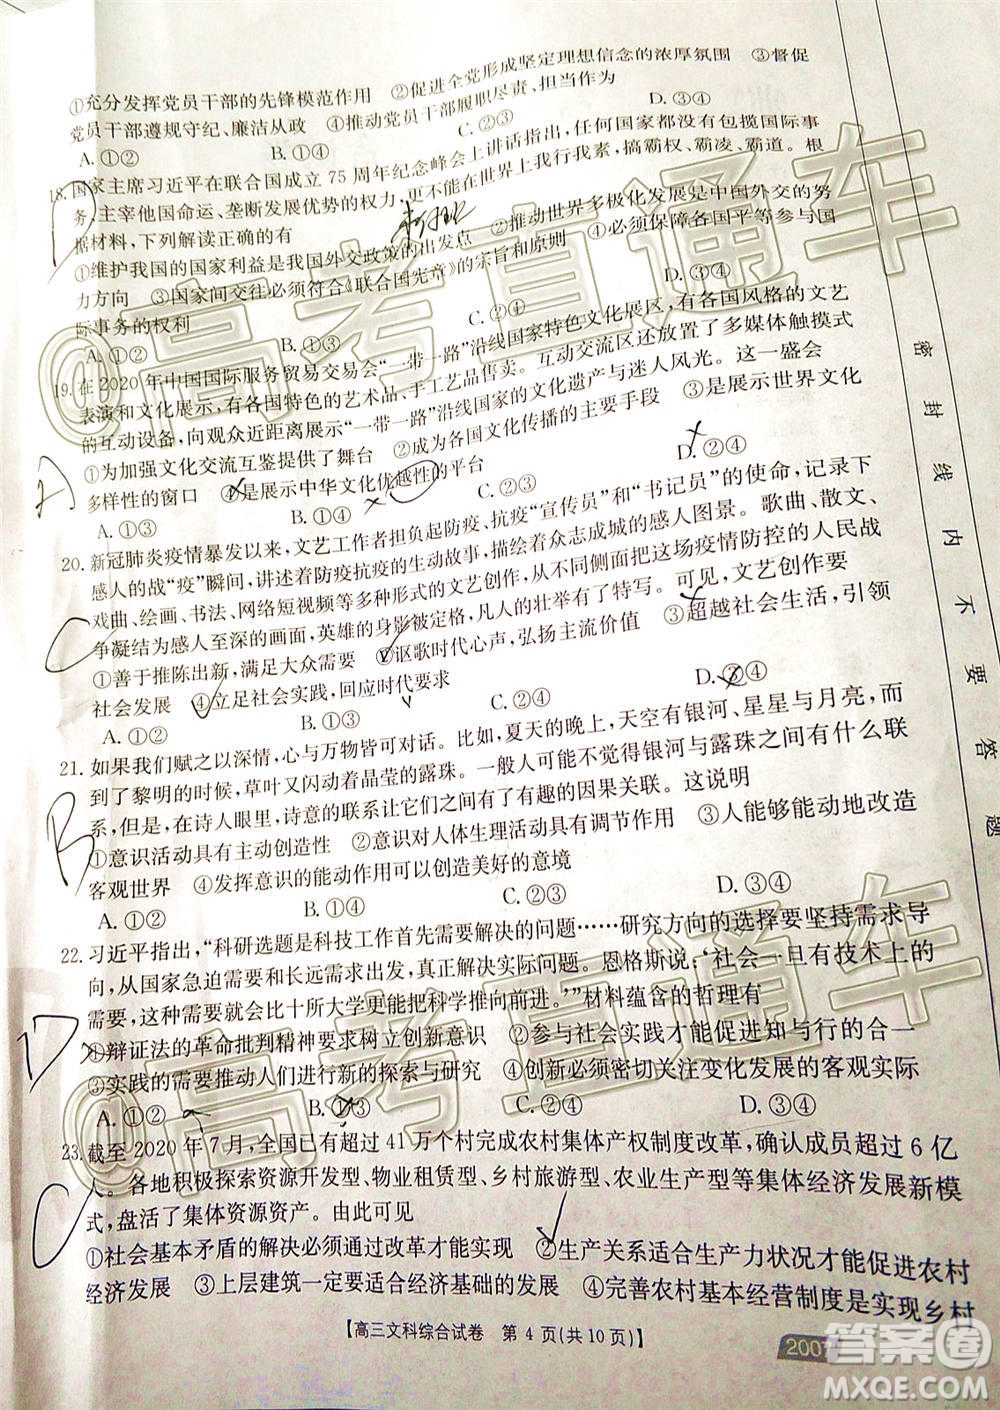 ①充分发挥党员干部的先锋模范作用 ②促进全党形成坚定理想信念的浓厚氛围 ③督促
党员干部遵规守纪、廉洁从政 ④推动党员干部履职尽责、担当作为
A. ①② B. ①④ C. ②③ D. ③④
18. 国家主席习近平在联合国成立 75 周年纪念峰会上讲话指出，任何国家都没有包揽国际事
务、主宰他国命运、垄断发展优势的权力，更不能在世界上我行我素，搞霸权、霸凌、霸道。根
据材料，下列解读正确的有
①维护我国的国家利益是我国外交政策的出发点 ②推动世界多极化发展是中国外交的努
力方向 ③国家间交往必须符合《联合国宪章》的宗旨和原则 ④必须保障各国平等参与国
际事务的权利
A. ①② B. ①④ C. ②③ D. ③④
19. 在 2020 年中国国际服务贸易交易会“一带一路”沿线国家特色文化展区，有各国风格的文艺
表演和文化展示，有各国特色的艺术品、手工艺品售卖。互动交流区还放置了多媒体触摸式
的互动设备，向观众近距离展示“一带一路”沿线国家的文化遗产与迷人风光。这一盛会
①为加强文化交流互鉴提供了舞台 ②成为各国文化传播的主要手段 ③是展示世界文化
多样性的窗口 ④是展示中华文化优越性的平台
A. ①③ B. ①④ C. ②③ D. ②④
20. 新冠肺炎疫情暴发以来，文艺工作者担负起防疫、抗疫“宣传员”和“书记员”的使命，记录
感人的战“疫”瞬间，讲述着防疫抗疫的生动故事，描绘出众志成城的感人图景。歌曲、散文、
戏曲、绘画、书法、网络短视频等多种形式的文艺创作，共同把这场疫情防控的人民战
争凝结为感人至深的画面，英雄的身影被定格，凡人的壮举有了回响。可见，文艺创作要
①善于推陈出新，满足大众需要 ②讴歌时代心声，弘扬主流价值 ③超越社会生活，引领
社会发展 ④立足社会实践，回应时代要求
A. ①② B. ①③ C. ②④ D. ③④
21. 如果我们赋之以深情，心与万物皆可对话。比如，夏天的晚上，天空有银河、星星与月亮，而
到了黎明的时候，草叶又闪动着晶莹的露珠。一般人可能不觉得银河与露珠之间有什么联
系，但是，在诗人眼里，诗意的联系让它们之间有了有趣的因果关联。这说明
①意识活动具有主动创造性 ②意识对人体生理活动具有调节作用 ③人能够能动地改造
客观世界 ④发挥意识的能动作用可以创造美好的意境
A. ①② B. ①④ C. ②③ D. ③④
22. 习近平指出，“科研选题是科技工作首先需要解决的问题……研究方向的选择要坚持需求导
向，从国家急迫需要和长远需求出发，真正解决实际问题。恩格斯说：‘社会一旦有技术上的
需要，这种需要就会比十所大学更能把科学推向前进。’”材料蕴含的哲理有
①辩证法的革命批判精神要求树立创新意识 ②参与社会实践才能促进知与行的合一
③实践的需要推动人们进行新的探索与研究 ④创新必须密切关注变化发展的客观实际
A. ①② B. ①③ C. ②④ D. ③④
23. 截至 2020 年 7 月，全国已有超过 41 万个村完成农村集体产权制度改革，确认成员超过 6 亿
人。各地积极探索资源开发型、物业租赁型、乡村旅游型、农业生产型等集体经济发展新模
式，盘活了集体资源资产。由此可见
①社会基本矛盾的解决必须通过改革才能实现 ②生产关系适合生产力状况才能促进农村
经济发展 ③上层建筑一定要适合经济基础的发展 ④完善农村基本经营制度是实现乡村
【高三文科综合试卷 第 4 页(共 10 页)】
密 封 线 内 不 要 答 题
D
A
C
B
D
C
@高考直通车
@高考直通车
答案圈
MXQE.COM